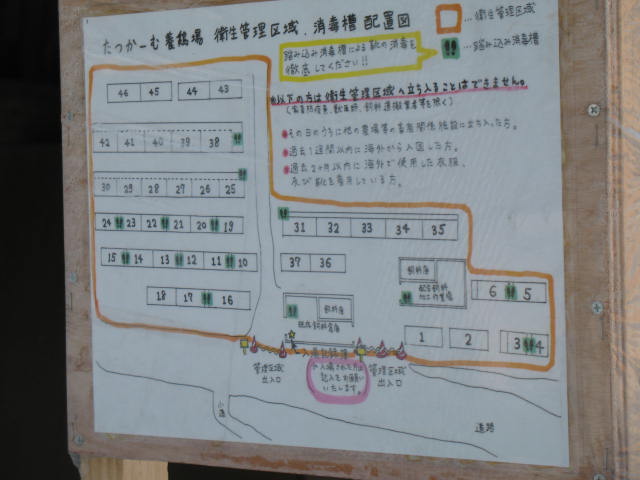 たつかーむ養鶏場 衛生管理区域、消毒槽 配置図
…衛生管理区域
…踏み込み消毒槽
踏み込み消毒槽による靴の消毒を
徹底してください!!
※以下の方は衛生管理区域へ立ち入ることはできません。
(家畜防疫員、獣医師、飼料運搬業者等を除く)
※その日のうちに他の農場等の畜産関係施設に立ち入った方。
※過去1週間以内に海外から入国した方。
※過去2ヶ月以内に海外で使用した衣服、
及び靴を着用している方。
46 45 44 43
42 41 40 39 38
30 29 28 27 26 25
24 23 22 21 20 19
15 14 13 12 11 10
18 17 16
31 32 33 34 35
37 36
飼料庫
配合飼料
加工作業場
6 5
飼料庫
1 2 3 4
入場記録簿
※入場された方は
記入をお願い
いたします。
管理区域
出入口
管理区域
出入口
小道
道路